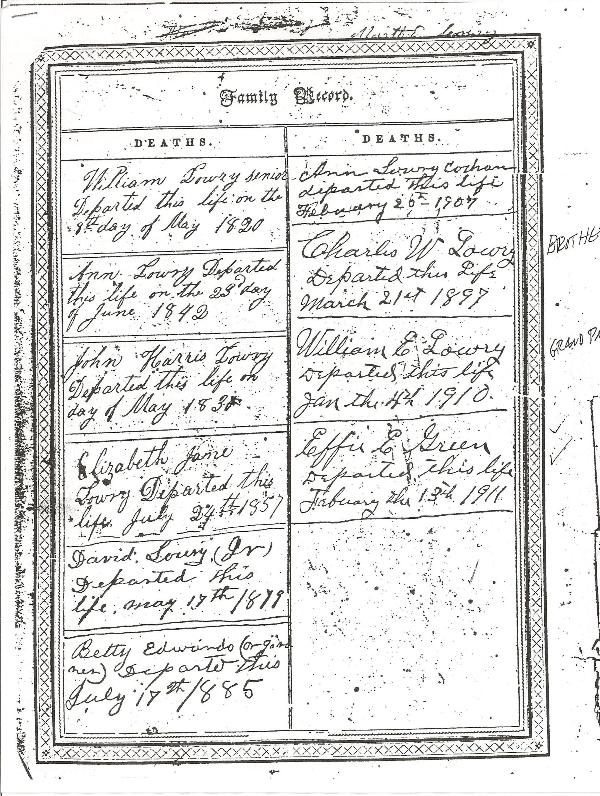 Family Record.
DEATHS.
William Lowry senior
Departed this life on the
day of May 1820
Ann Lowry Departed
this life on the 23d day
of June 1842
John Harris Lowry
Departed this life on
day of May 183
Elizabeth Jane
Lowry Departed this
life July 27th 1857
David Lowry (Jr)
Departed this
life. may 17th 1879
Betty Edwards (or
Departe this
July 17th 1885
DEATHS.
Ann Lowry Cochran
departed this life
February 20th 1907
Charles W Lowry
Departed this Life
March 21st 1897
William E Lowry
Departed this lif
Jan the 4th 1910.
Effie E Green
Departed this life
Febuary the 13th 1911
BROTHE
GRAND PA